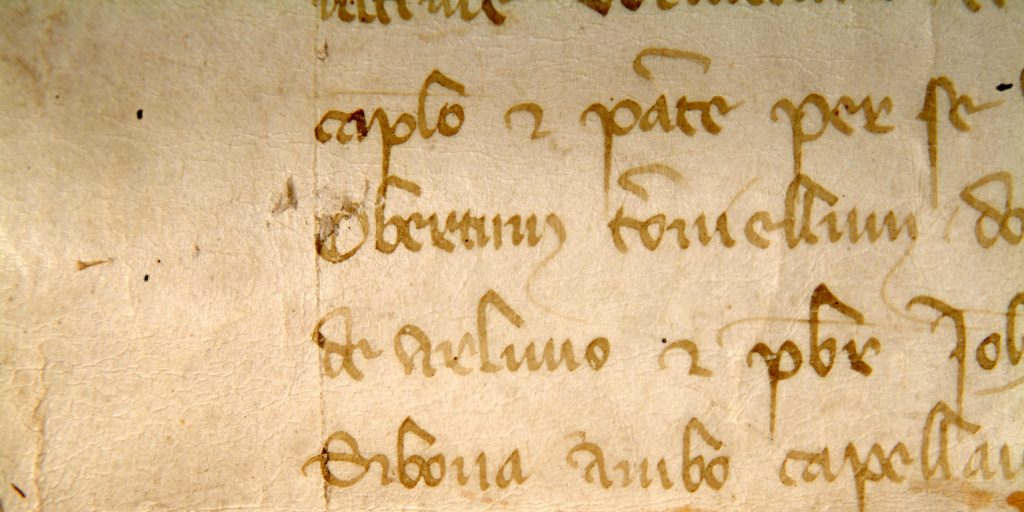 caplo & pate per se
Obertum torniellum do
de arluno & pbr Joh
Bibona ambo capellan